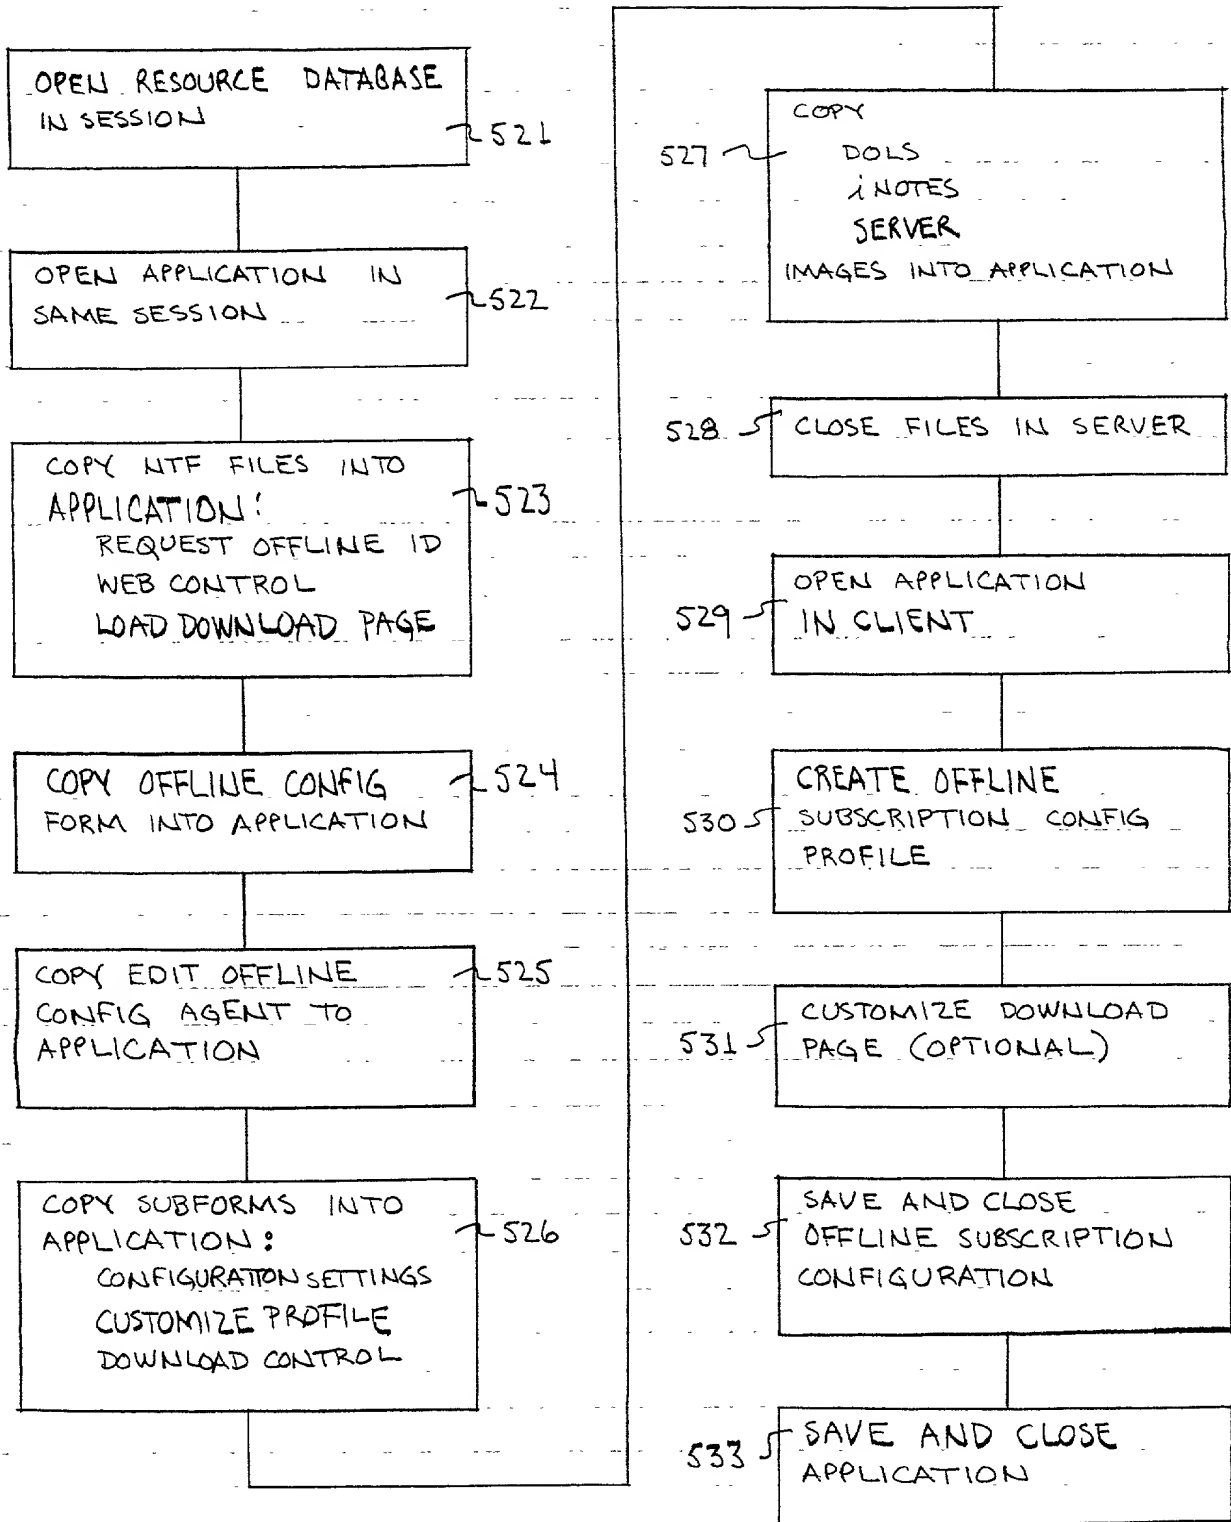 OPEN RESOURCE DATABASE
IN SESSION
521
OPEN APPLICATION IN
SAME SESSION
522
COPY NTF FILES INTO
APPLICATION:
523
REQUEST OFFLINE ID
WEB CONTROL
LOAD DOWNLOAD PAGE
COPY OFFLINE CONFIG
FORM INTO APPLICATION
524
COPY EDIT OFFLINE
CONFIG AGENT TO
APPLICATION
525
COPY SUBFORMS INTO
APPLICATION:
526
CONFIGURATION SETTINGS
CUSTOMIZE PROFILE
DOWNLOAD CONTROL
COPY
527
DOLS
iNOTES
SERVER
IMAGES INTO APPLICATION
528
CLOSE FILES IN SERVER
OPEN APPLICATION
IN CLIENT
529
CREATE OFFLINE
SUBSCRIPTION CONFIG
PROFILE
530
CUSTOMIZE DOWNLOAD
PAGE (OPTIONAL)
531
SAVE AND CLOSE
OFFLINE SUBSCRIPTION
CONFIGURATION
532
SAVE AND CLOSE
APPLICATION
533